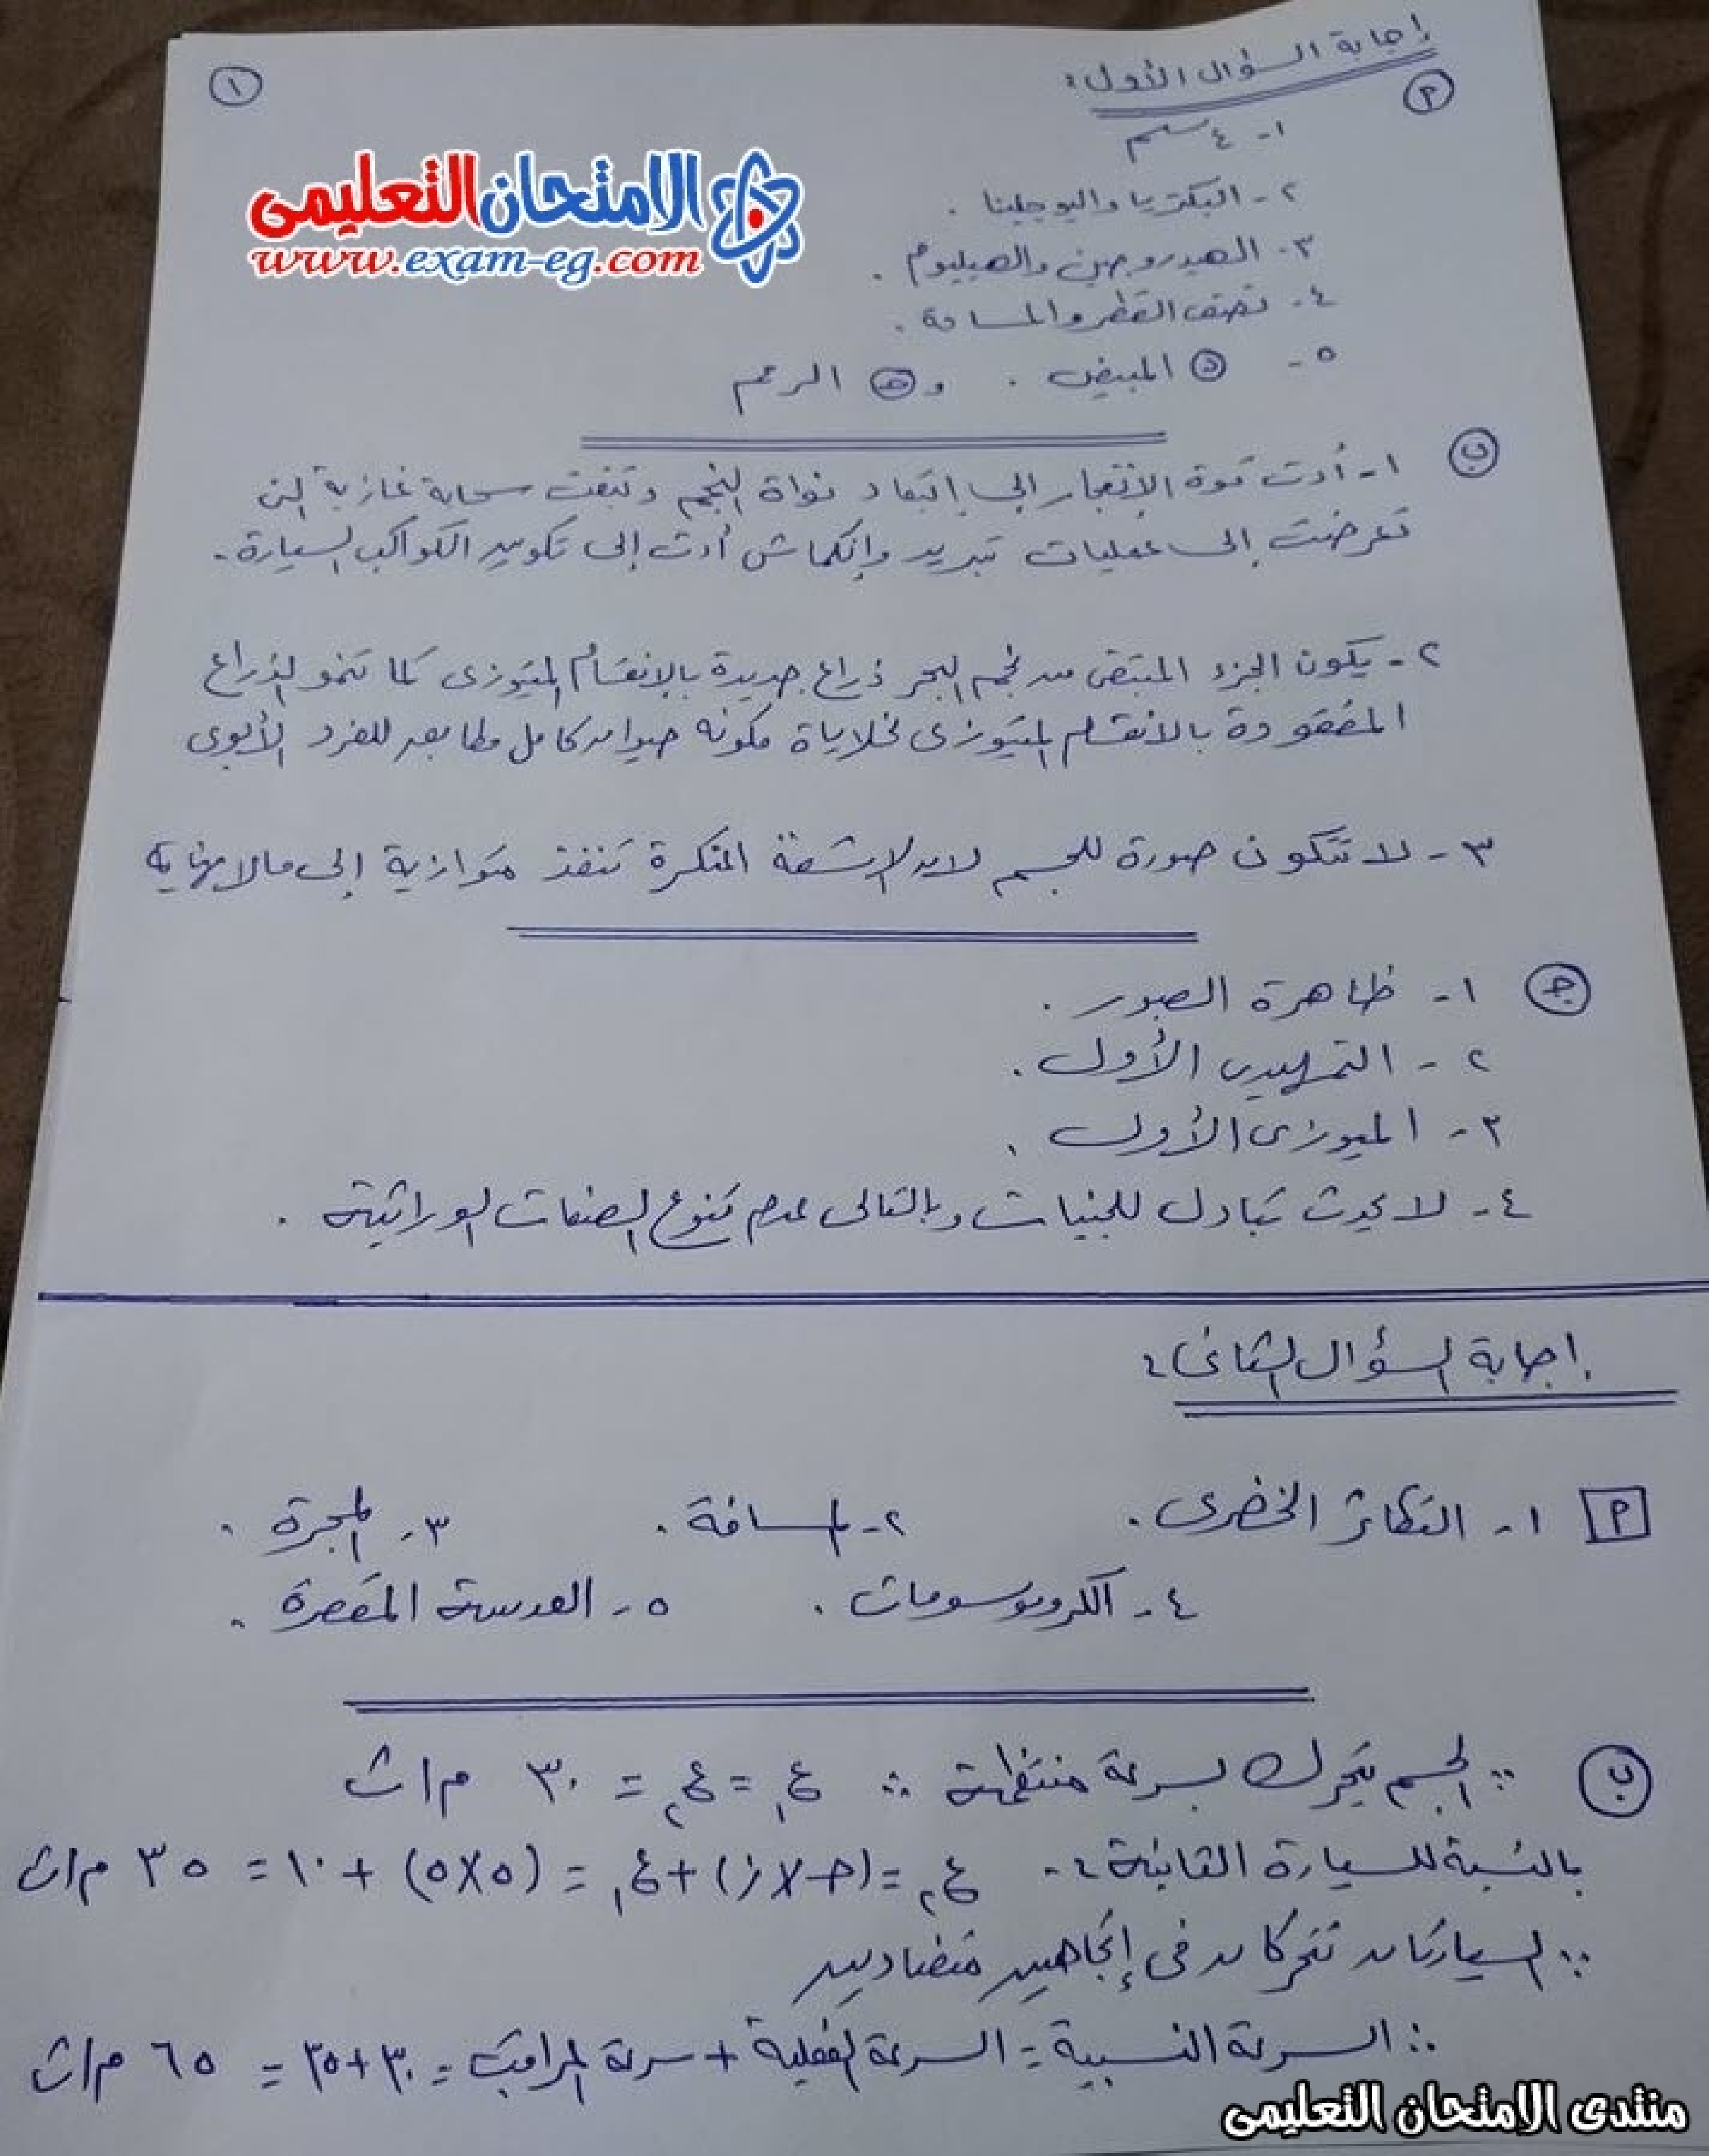 إجابة السؤال الأول:
١
أ
١- ٤ سم
٢- البكتريا واليوجلينا .
٣- الهيدروجين والهيليوم .
٤- نصف القطر والمساحة .
٥- د المبيض . و هـ الرحم
الامتحان التعليمى
www.exam-eg.com
ب ١- أدت قوة الإنفجار إلى إبتعاد نواة النجم وتبقت سحابة غازية التى
تعرضت إلى عمليات تبريد وإنكماش أدت إلى تكوين الكواكب السيارة .
٢- يكون الجزء المتبقى من نجم البحر ذراع جديدة بالإنقسام الميتوزى كما تنمو الذراع
المفقودة بالانقسام الميتوزى لخلاياة مكونه حيوان كامل مطابق للفرد الأبوى
٣- لا تتكون صورة للجسم لان الاشعة المنكسرة تنفذ متوازية إلى مالانهاية
ج ١- ظاهرة العبور .
٢- التمهيدى الأول .
٣- الميوزى الأول .
٤- لا يحدث تبادل للجينات وبالتالى عدم تنوع الصفات الوراثية .
إجابة السؤال الثانى :
أ ١- التكاثر الخضرى . ٢- المسافة . ٣- المجرة .
٤- الكروموسومات . ٥- العدسة المقعرة .
ب ∵ الجسم يتحرك بسرعة منتظمة ∴ ع١ = ع٢ = ٣٠ م/ث
بالنسبة للسيارة الثانية :- ع٢ = (جـ × ز) + ع١ = (٥×٥) + ١٠ = ٣٥ م/ث
∵ السيارتان تتحركان فى إتجاهين متضادين
∴ السرعة النسبية = السرعة الفعلية + سرعة المراقب = ٣٠+٣٥ = ٦٥ م/ث
منتدى الامتحان التعليمى